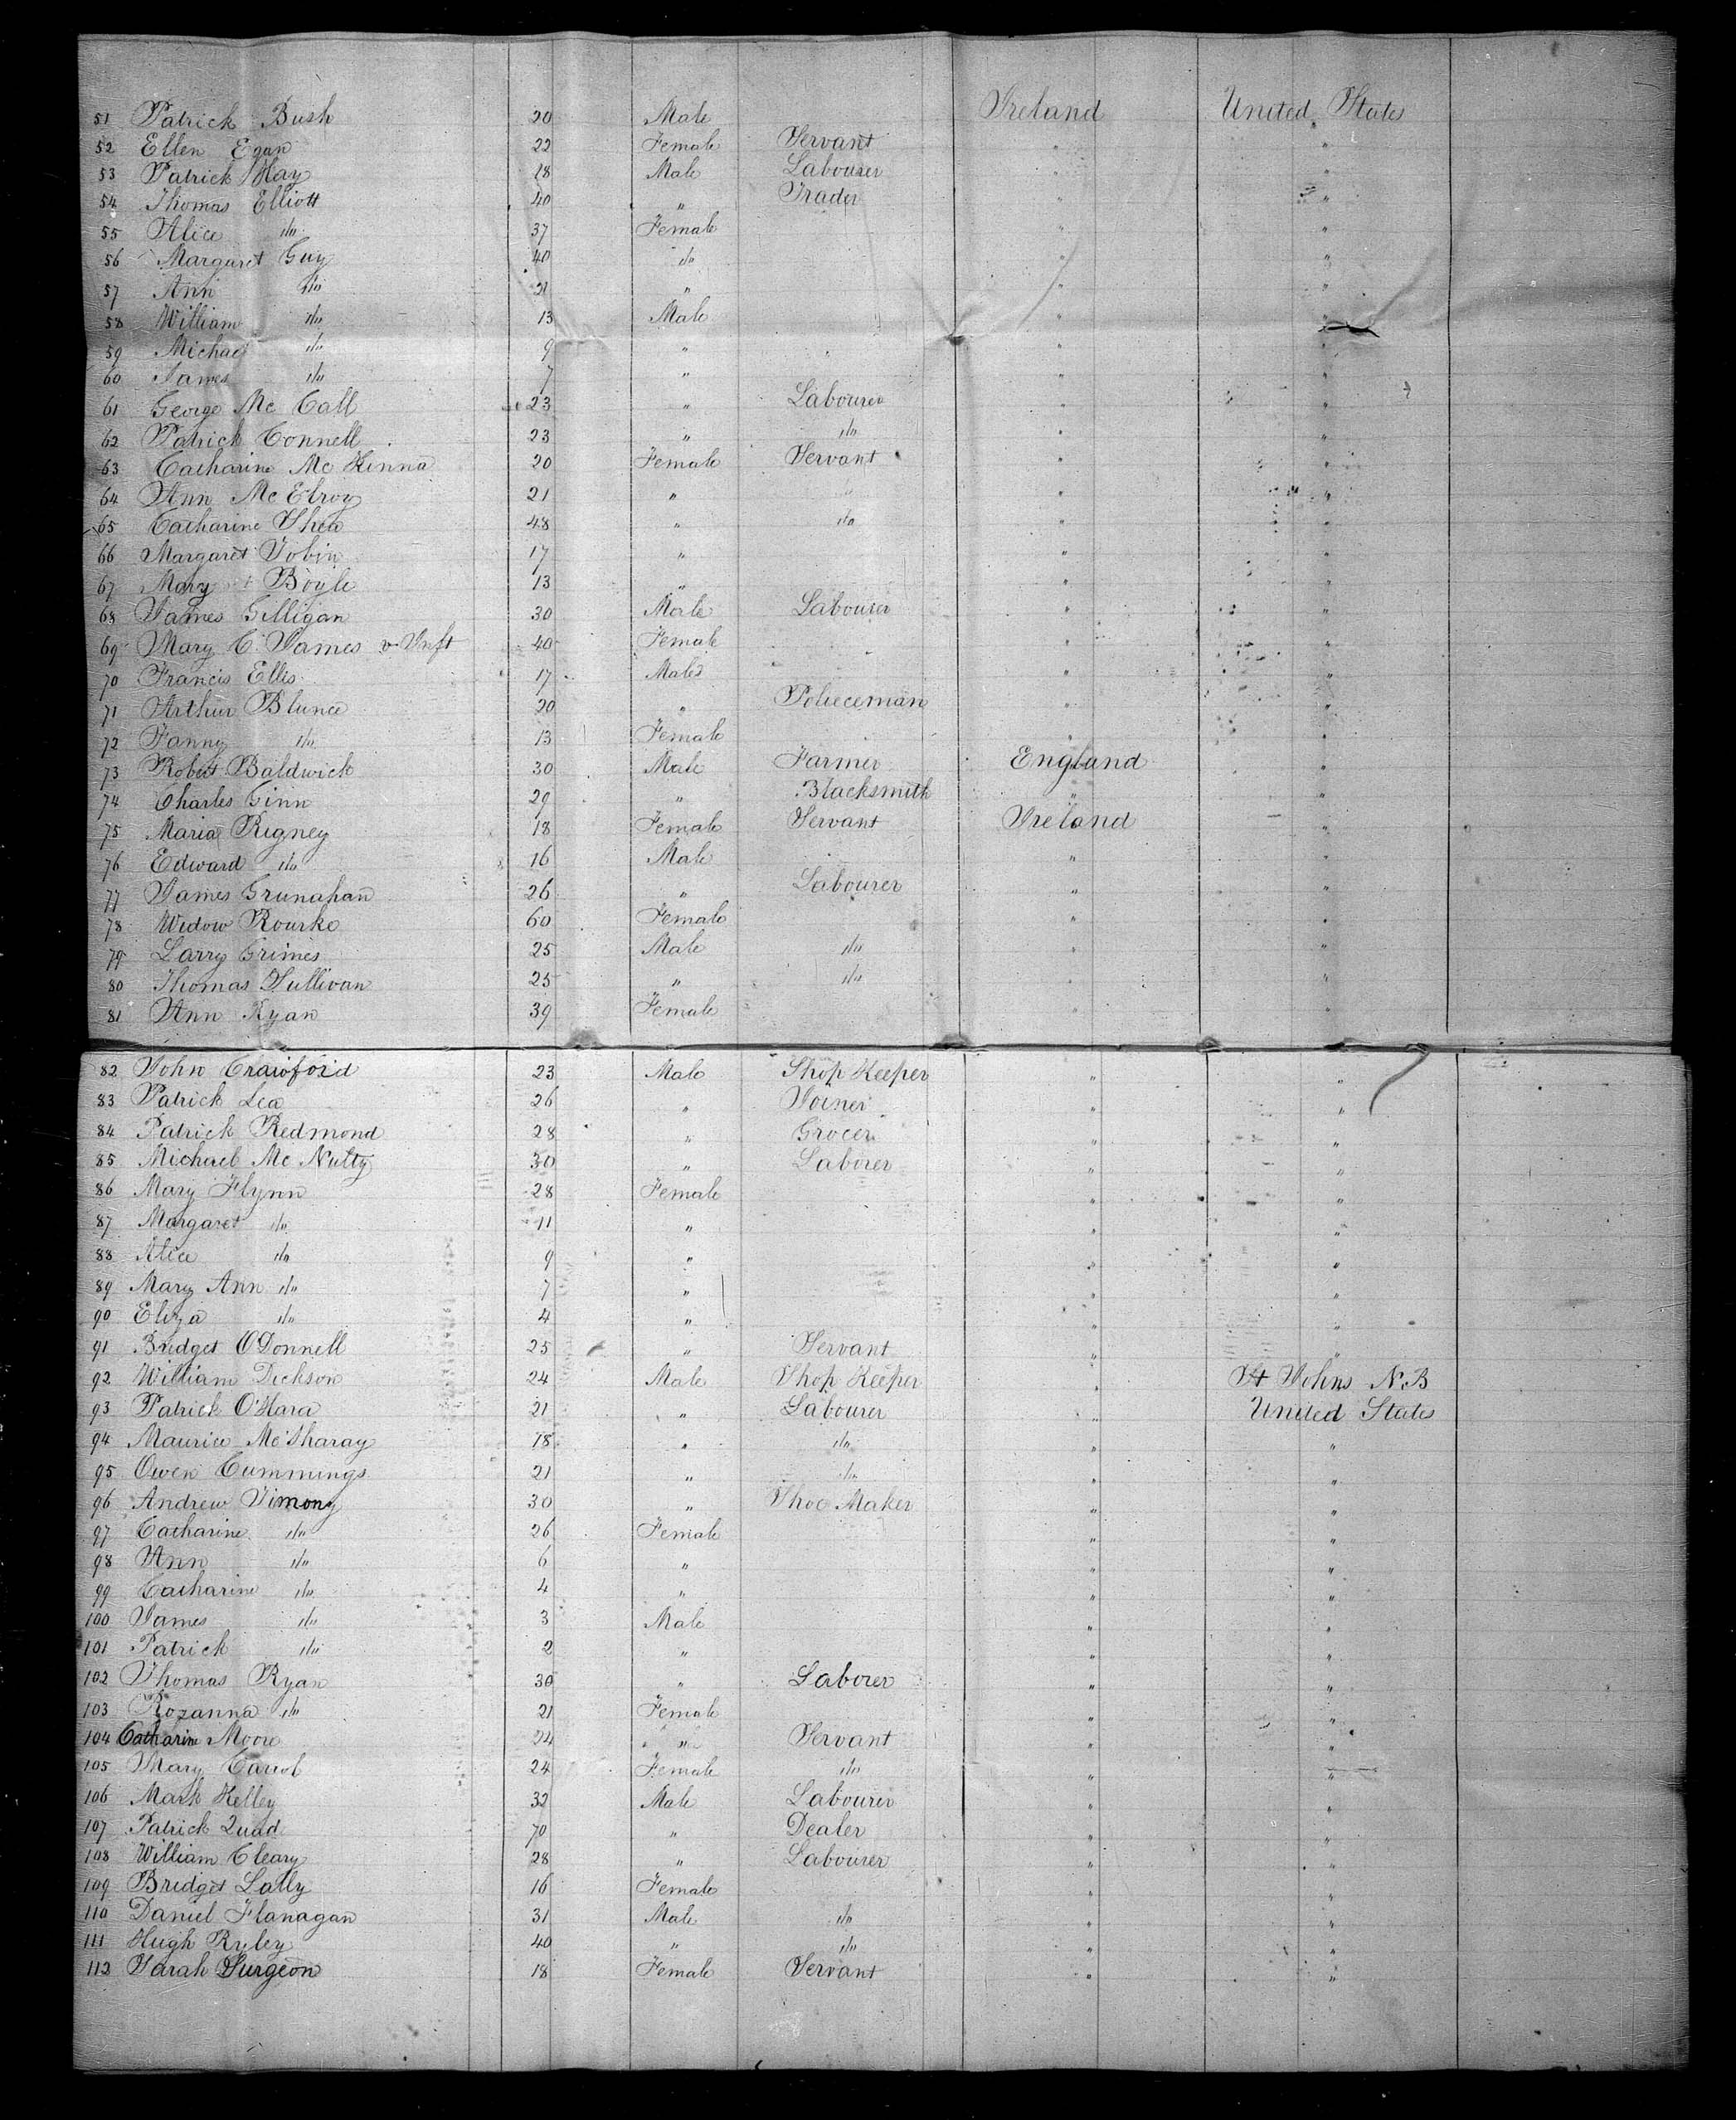 51 Patrick Bush 20 Male Ireland United States
52 Ellen Egan 22 Female Servant " "
53 Patrick Hay 28 Male Labourer " "
54 Thomas Elliott 40 " Trader " "
55 Alice do 37 Female " "
56 Margaret Guy 40 do " "
57 Ann do 21 " " "
58 William do 13 Male " "
59 Michael do 9 " " "
60 James do 7 " " "
61 George Mc Call 23 " Labourer " "
62 Patrick Connell 23 " do " "
63 Catharine Mc Kenna 20 Female Servant " "
64 Ann Mc Elroy 21 " " " "
65 Catharine Shea 48 " do " "
66 Margaret Tobin 17 " " "
67 Mary Boyle 13 " " "
68 James Gilligan 30 Male Labourer " "
69 Mary C. James & Inft 40 Female " "
70 Francis Ellis 17 Male " "
71 Arthur Blunce 20 " Policeman " "
72 Fanny do 13 Female " "
73 Robert Baldwick 30 Male Farmer England "
74 Charles Ginn 29 " Blacksmith " "
75 Maria Rigney 18 Female Servant Ireland "
76 Edward do 16 Male " "
77 James Grunahan 26 " Labourer " "
78 Widow Rourke 60 Female " "
79 Larry Grimes 25 Male do " "
80 Thomas Sullivan 25 " do " "
81 Ann Ryan 39 Female " "
82 John Crawford 23 Male Shop Keeper " "
83 Patrick Lea 26 " Joiner " "
84 Patrick Redmond 28 " Grocer " "
85 Michael Mc Nulty 30 " Laborer " "
86 Mary Flynn 28 Female " "
87 Margaret do 11 " " "
88 Alice do 9 " " "
89 Mary Ann do 7 " " "
90 Eliza do 4 " " "
91 Bridget O'Donnell 25 " Servant " "
92 William Dickson 24 Male Shop Keeper " St Johns N.B
93 Patrick O'Hara 21 " Labourer " United States
94 Maurice Mc Sharay 18 " do " "
95 Owen Cummings 21 " do " "
96 Andrew Timony 30 " Shoe Maker " "
97 Catharine do 26 Female " "
98 Ann do 6 " " "
99 Catharine do 4 " " "
100 James do 3 Male " "
101 Patrick do 2 " " "
102 Thomas Ryan 30 " Laborer " "
103 Rozanna do 21 Female " "
104 Catharin Moore 24 " Servant " "
105 Mary Carrol 24 Female do " "
106 Mark Kelley 32 Male Labourer " "
107 Patrick Quad 70 " Dealer " "
108 William Cleary 28 " Labourer " "
109 Bridget Lally 16 Female " "
110 Daniel Flanagan 31 Male do " "
111 Hugh Ryley 40 " do " "
112 Sarah Surgeon 18 Female Servant " "